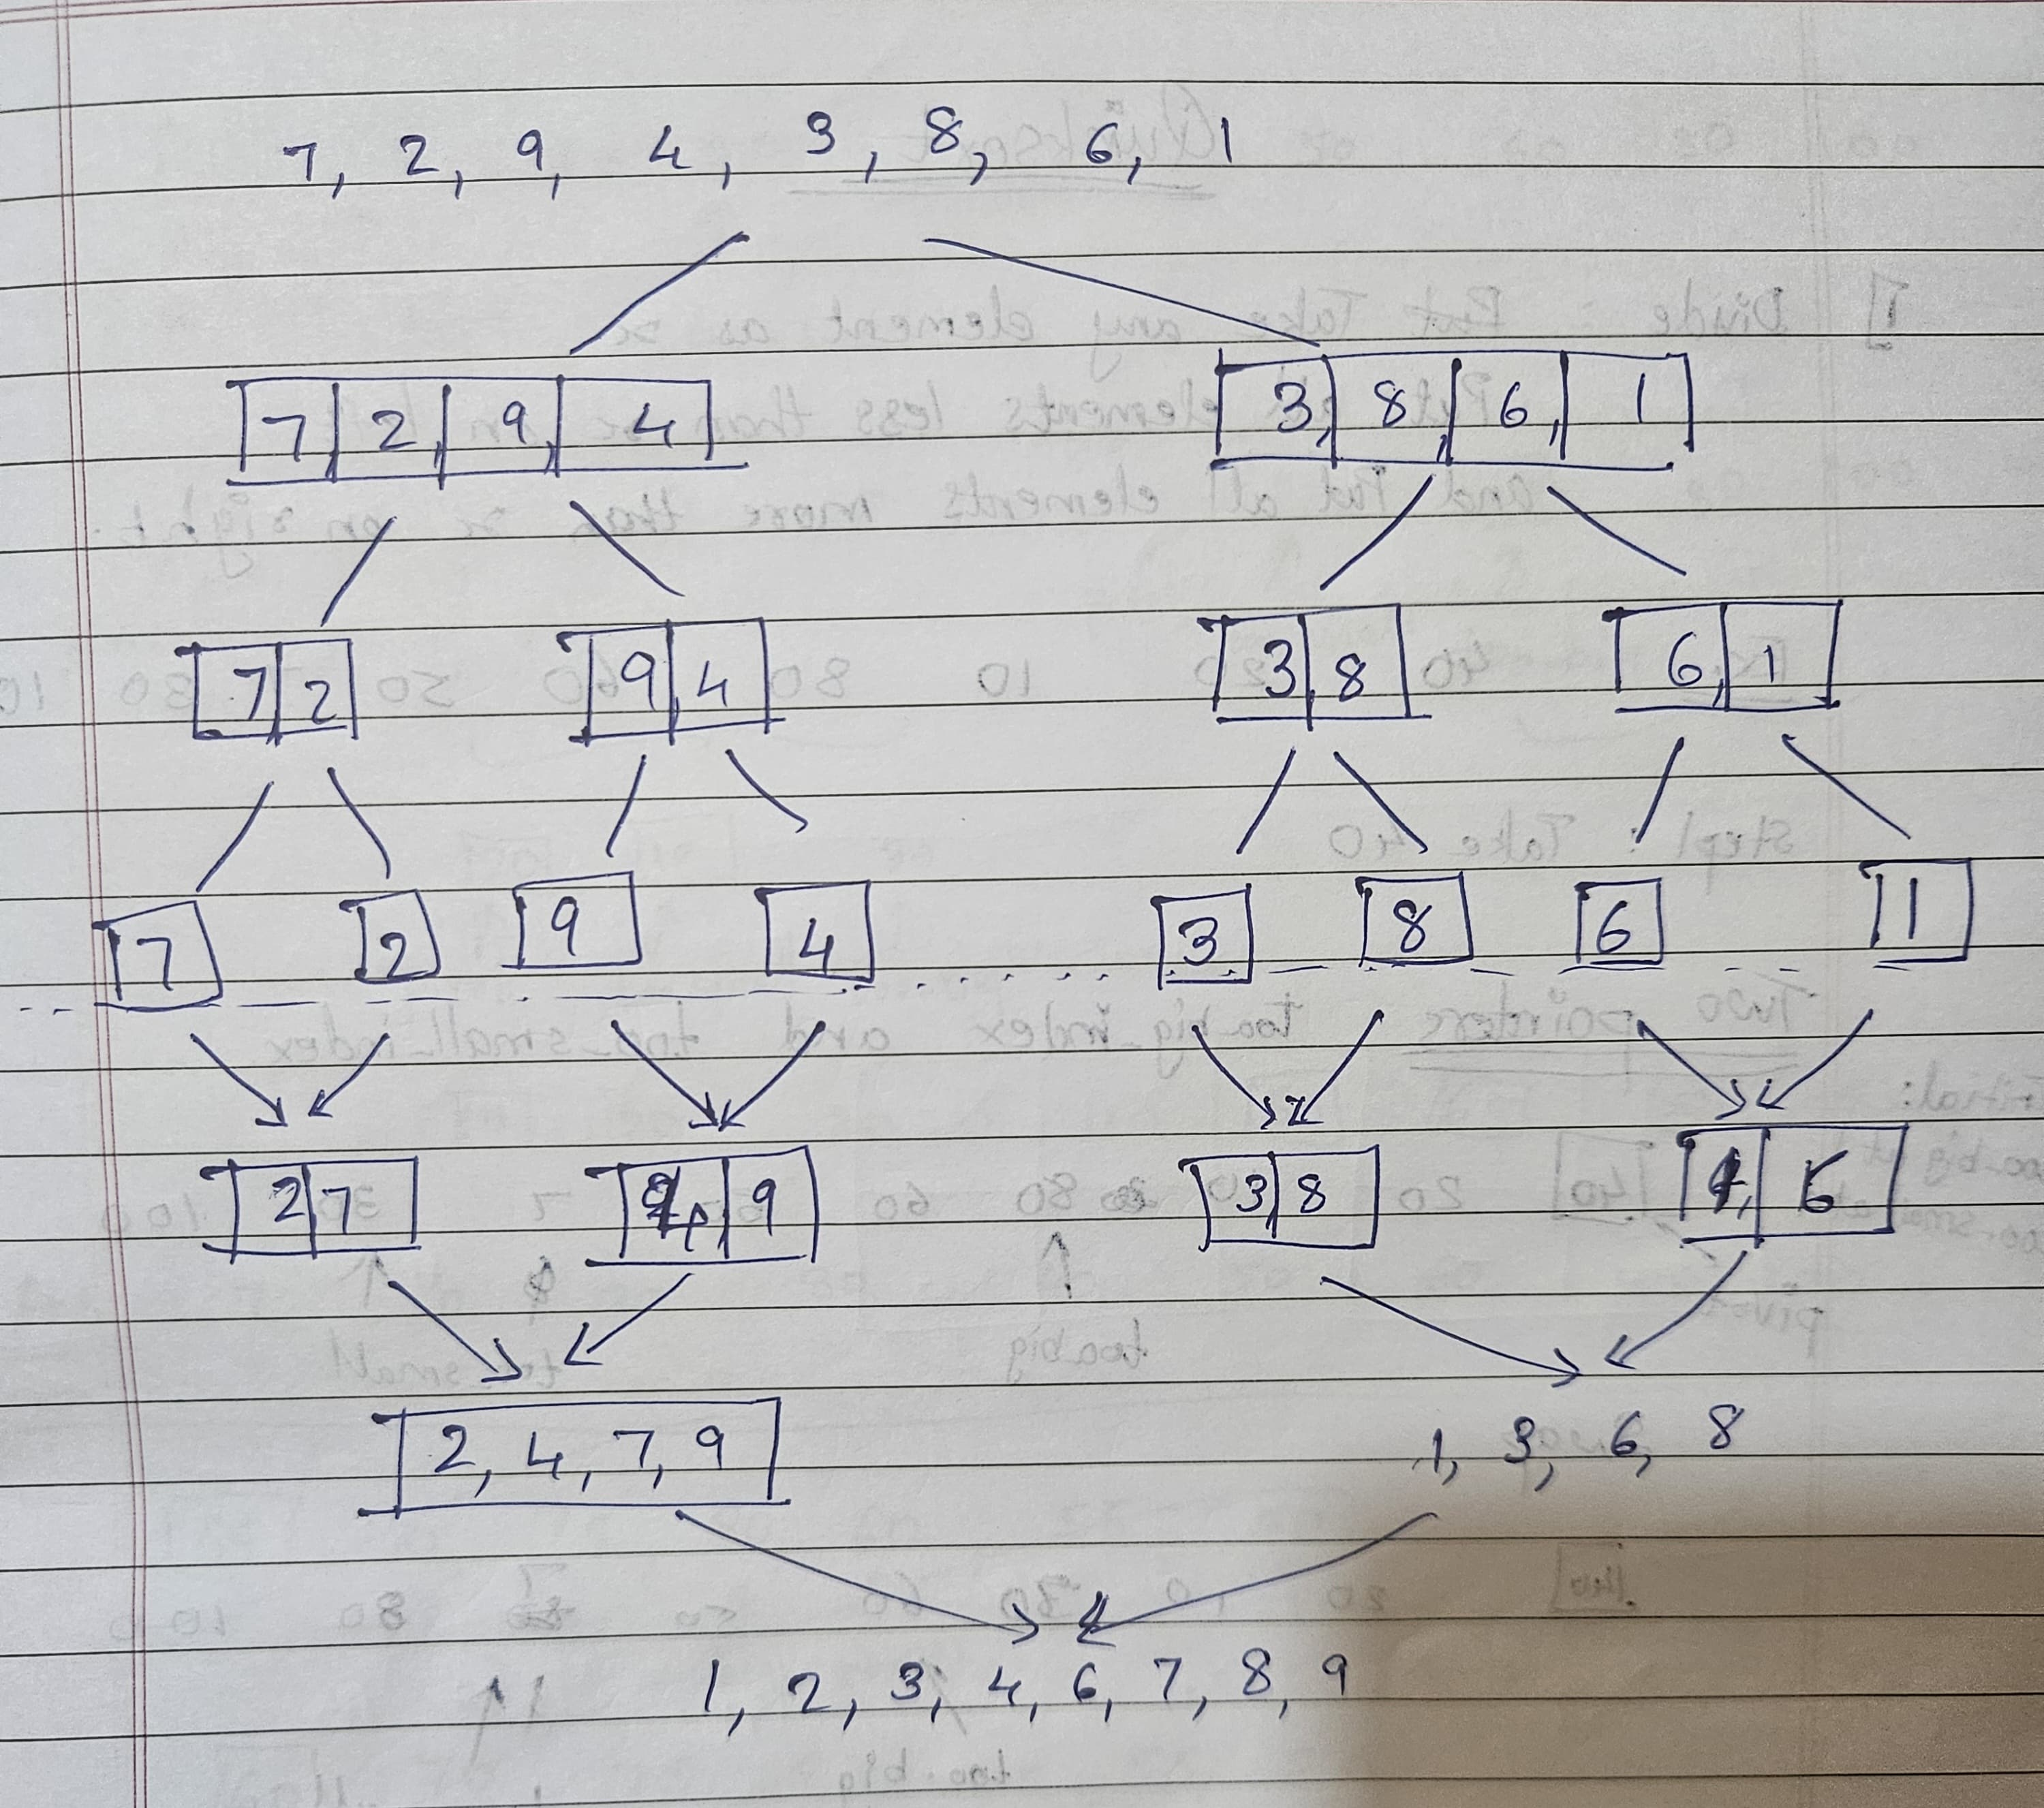 7, 2, 9, 4, 3, 8, 6, 1
7, 2, 9, 4 3, 8, 6, 1
7 2 9, 4 3, 8 6, 1
7 2 9 4 3 8 6 1
2 7 4, 9 3, 8 1, 6
2, 4, 7, 9 1, 3, 6, 8
1, 2, 3, 4, 6, 7, 8, 9